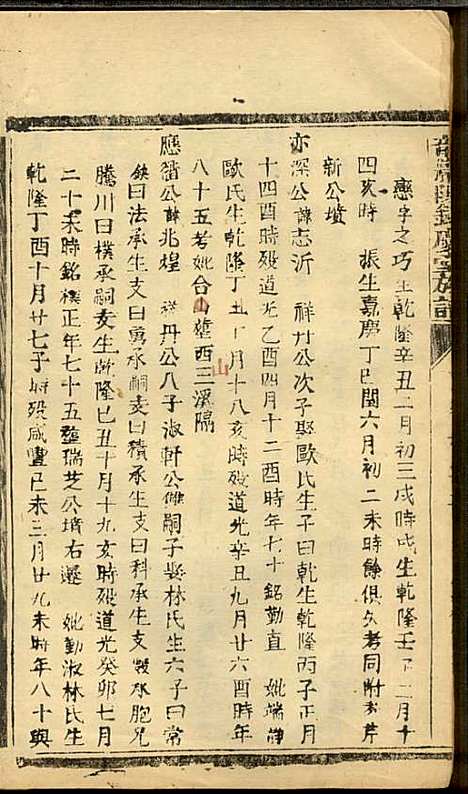 戀字之巧生乾隆辛丑二月初三戌時戌生乾隆壬二月十
四亥時 振生嘉慶丁巳閏六月初二未時餘俱久考同附芹
新公墳
亦深公諱志沂 祥丹公次子娶歐氏生子曰乾生乾隆丙子正月
十四酉時歿道光乙酉四月十二酉時年七十銘勤直 妣端靜
歐氏生乾隆丁丑十月十八亥時歿道光辛丑九月廿六酉時年
八十五考妣合山葬西三溪隔
山
應猶公諱兆煌 祥丹公八子淑軒公繼嗣子娶林氏生六子曰常
鈇曰法承生支曰寬承嗣支曰積承生支曰科承生支毅承胞兄
騰川曰樸承嗣支生乾隆己丑十月十九亥時歿道光癸卯七月
二十未時銘樸正年七十五塟瑞芝公墳右邊 妣勤淑林氏生
乾隆丁酉十月廿七子時歿咸豐己未三月廿九未時年八十與